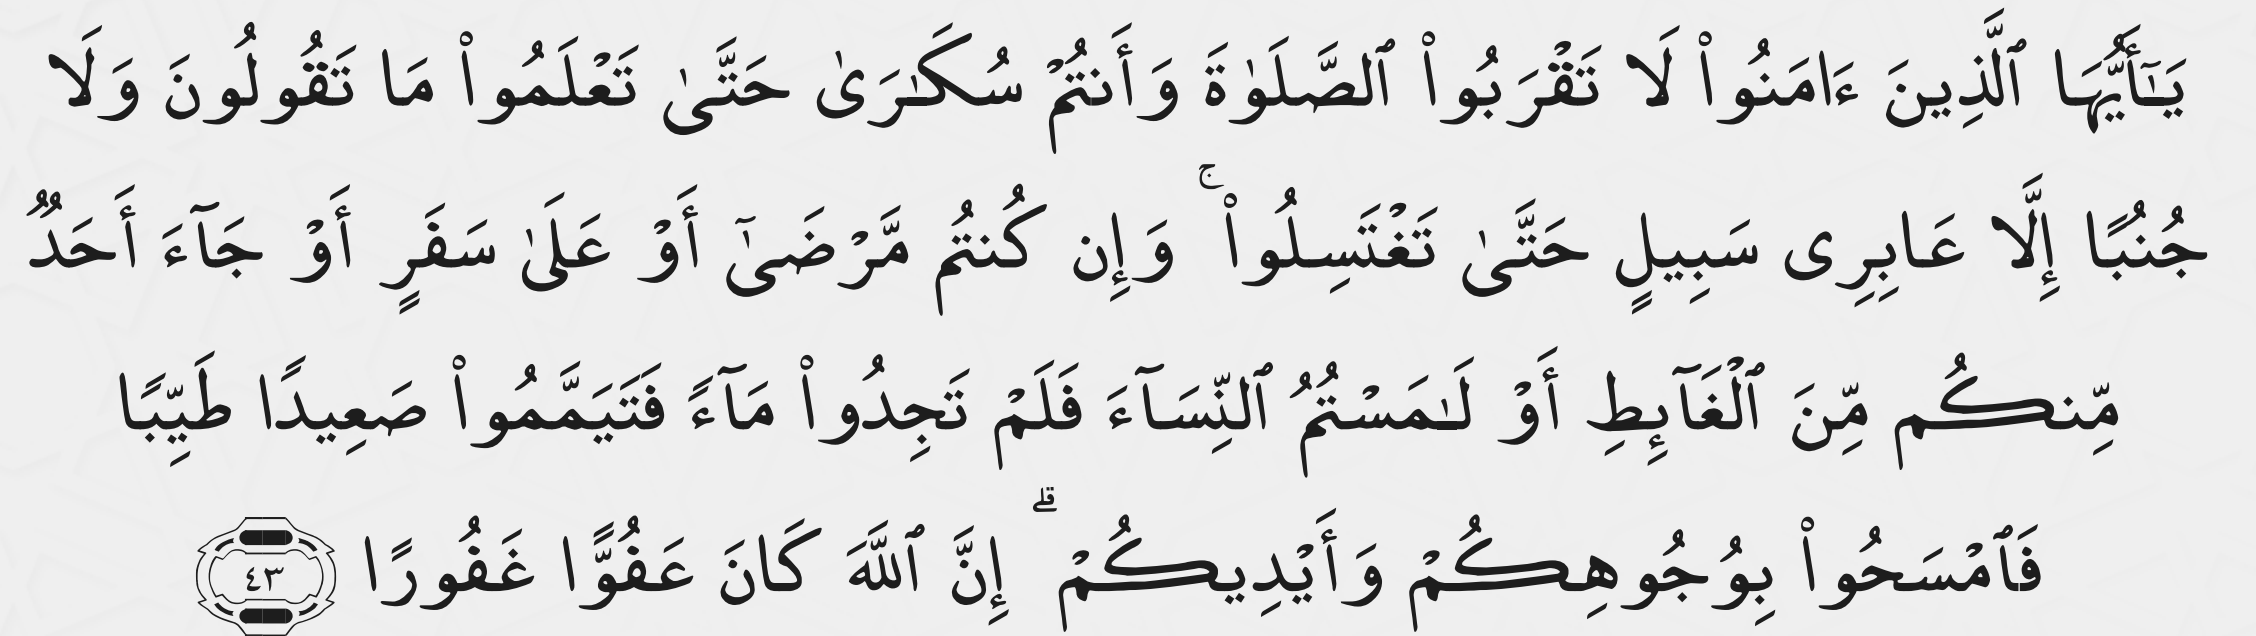 يَـٰٓأَيُّهَا ٱلَّذِينَ ءَامَنُوا۟ لَا تَقْرَبُوا۟ ٱلصَّلَوٰةَ وَأَنتُمْ سُكَـٰرَىٰ حَتَّىٰ تَعْلَمُوا۟ مَا تَقُولُونَ وَلَا
جُنُبًا إِلَّا عَابِرِى سَبِيلٍ حَتَّىٰ تَغْتَسِلُوا۟ ۚ وَإِن كُنتُم مَّرْضَىٰٓ أَوْ عَلَىٰ سَفَرٍ أَوْ جَآءَ أَحَدٌ
مِّنكُم مِّنَ ٱلْغَآئِطِ أَوْ لَـٰمَسْتُمُ ٱلنِّسَآءَ فَلَمْ تَجِدُوا۟ مَآءً فَتَيَمَّمُوا۟ صَعِيدًا طَيِّبًا
فَٱمْسَحُوا۟ بِوُجُوهِكُمْ وَأَيْدِيكُمْ ۗ إِنَّ ٱللَّهَ كَانَ عَفُوًّا غَفُورًا ٤٣